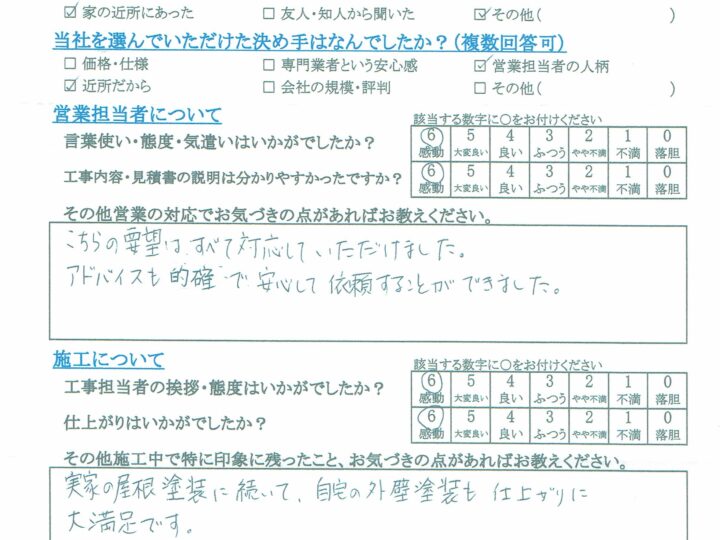 ☑ 家の近所にあった ☐ 友人・知人から聞いた ☑ その他( )
当社を選んでいただけた決め手はなんでしたか？(複数回答可)
☐ 価格・仕様 ☐ 専門業者という安心感 ☑ 営業担当者の人柄
☑ 近所だから ☐ 会社の規模・評判 ☐ その他( )
営業担当者について 該当する数字に○をお付けください
言葉使い・態度・気遣いはいかがでしたか？ 6 5 4 3 2 1 0
感動 大変良い 良い ふつう やや不満 不満 落胆
工事内容・見積書の説明は分かりやすかったですか？ 6 5 4 3 2 1 0
感動 大変良い 良い ふつう やや不満 不満 落胆
その他営業の対応でお気づきの点があればお教えください。
こちらの要望はすべて対応していただけました。
アドバイスも的確で安心して依頼することができました。
施工について 該当する数字に○をお付けください
工事担当者の挨拶・態度はいかがでしたか？ 6 5 4 3 2 1 0
感動 大変良い 良い ふつう やや不満 不満 落胆
仕上がりはいかがでしたか？ 6 5 4 3 2 1 0
感動 大変良い 良い ふつう やや不満 不満 落胆
その他施工中で特に印象に残ったこと、お気づきの点があればお教えください。
実家の屋根塗装に続いて、自宅の外壁塗装も仕上がりに
大満足です。